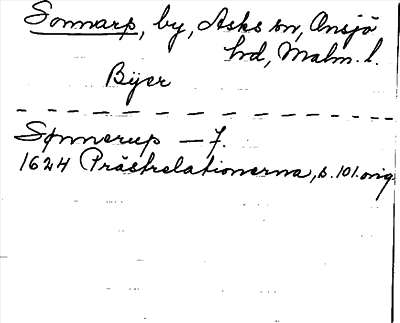 Sonnarp, by, Asks sn, Onsjö
hd, Malm. l.
Byer
Sønnerup — 7.
1624 Prästrelationerna, s. 101. orig